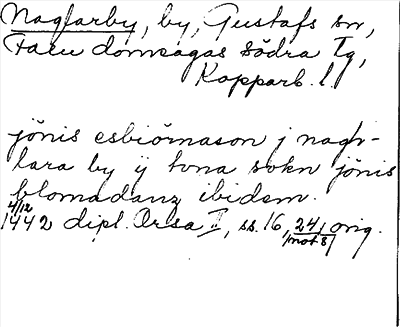 Naglarby, by, Gustafs sn,
Falu domsagas södra Tg,
Kopparb. l.
jönis esbiörnason j nagh-
lara by ij tvna sokn jönis
blomadanz ibidem.
4/12
1442 dipl. Orsa II, ss. 16, 24, orig.
not 8